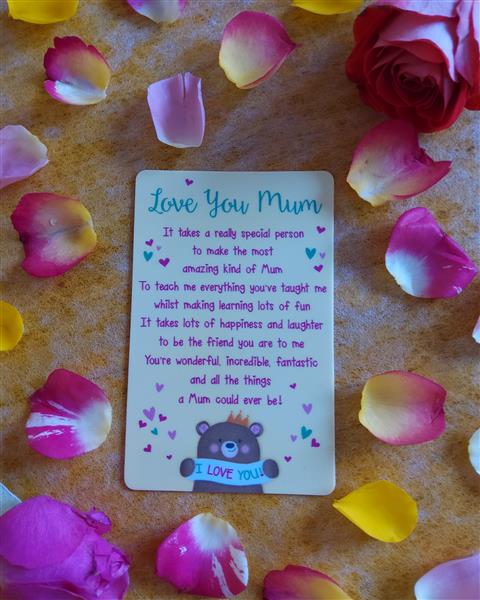 Love You Mum
It takes a really special person
to make the most
amazing kind of Mum
To teach me everything you've taught me
whilst making learning lots of fun
It takes lots of happiness and laughter
to be the friend you are to me
You're wonderful, incredible, fantastic
and all the things
a Mum could ever be!
I LOVE YOU!